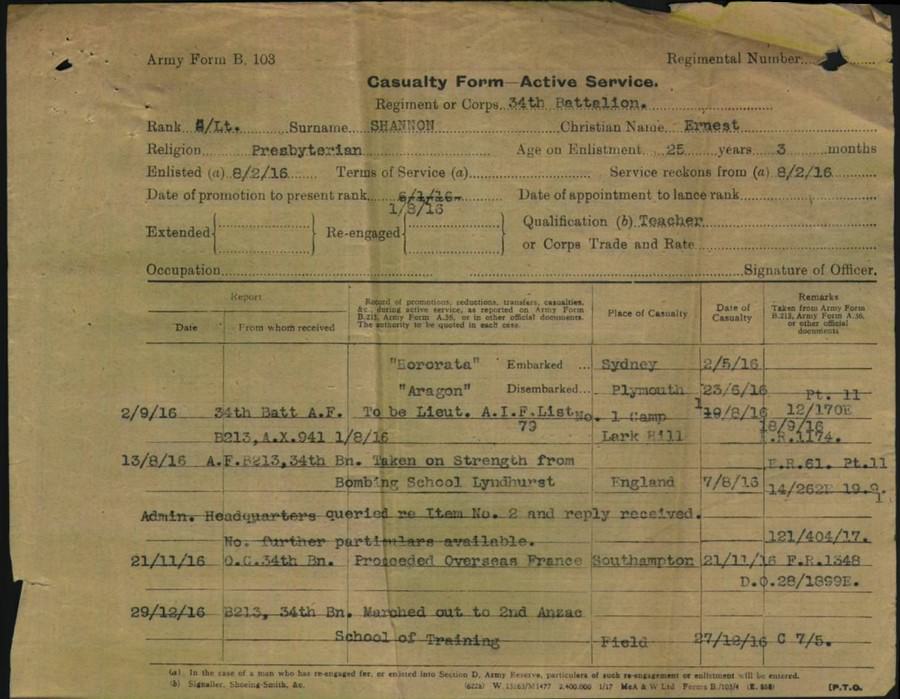 Army Form B. 103
Regimental Number
Casualty Form—Active Service.
Regiment or Corps 34th Battalion.
Rank 2/Lt. Surname SHANNON Christian Name Ernest
Religion Presbyterian Age on Enlistment 25 years 3 months
Enlisted (a) 8/2/16 Terms of Service (a) Service reckons from (a) 8/2/16
Date of promotion to present rank 6/1/16 Date of appointment to lance rank
1/8/16
Extended Re-engaged Qualification (b) Teacher
or Corps Trade and Rate
Occupation Signature of Officer.
Report
Date From whom received
Record of promotions, reductions, transfers, casualties, &c., during active service, as reported on Army Form B.213, Army Form A.36, or in other official documents. The authority to be quoted in each case.
Place of Casualty
Date of Casualty
Remarks
Taken from Army Form B.213, Army Form A.36, or other official documents
"Hororata" Embarked ... Sydney 2/5/16
"Aragon" Disembarked... Plymouth 23/6/16 Pt. 11
2/9/16 34th Batt A.F. To be Lieut. A.I.F. List No. 1 Camp 19/8/16 12/170E
79 18/9/16
B213, A.X.941 1/8/16 Lark Hill E.R.1174.
13/8/16 A.F.B213, 34th Bn. Taken on Strength from E.R.61. Pt.11
Bombing School Lyndhurst England 7/8/16 14/262E 19.9.
Admin. Headquarters queried re Item No. 2 and reply received.
No. further particulars available. 121/404/17.
21/11/16 O.C.34th Bn. Proceeded Overseas France Southampton 21/11/16 F.R.1348
D.O.28/1899E.
29/12/16 B213, 34th Bn. Marched out to 2nd Anzac
School of Training Field 27/12/16 C 7/5.
(a) In the case of a man who has re-engaged for, or enlisted into Section D, Army Reserve, particulars of such re-engagement or enlistment will be entered.
(b) Signaller, Shoeing-Smith, &c. 2,400,000 1/17 McA & W Ltd Forms B./103/4 (E. 858) [P.T.O.